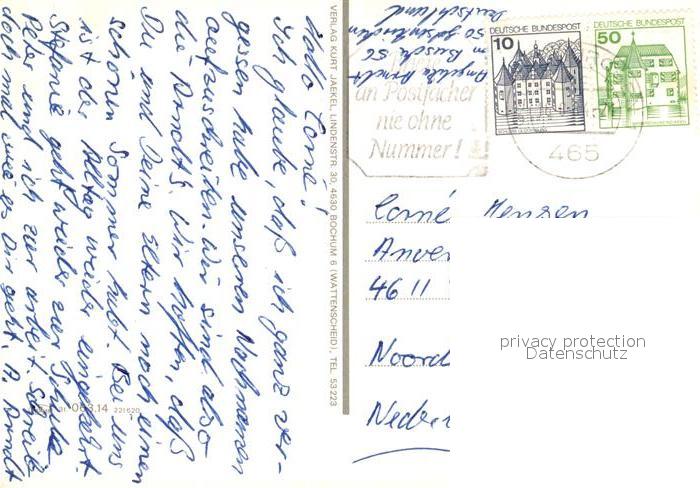 Hallo Corné!
Ich glaube, daß ich ganz ver-
gessen habe unseren Nachnamen
aufzuschreiben. Wir sind also
die Arndt's. Wir hoffen, daß
Du und Deine Eltern noch einen
schönen Sommer habt. Bei uns
ist der Alltag wieder eingekehrt.
Stefanie geht wieder zur Schule
Peter und ich zur Arbeit. Schreib
doch mal wie es Dir geht. A. Arndt
VERLAG KURT JAEKEL, LINDENSTR. 30, 4630 BOCHUM 6 (WATTENSCHEID), TEL. 53 223
nr. 063.14 221620
Angelika Arndt
Im Busche 56
50 Gelsenkirchen
Deutschland
Briefe
an Postfächer
nie ohne
Nummer!
465
DEUTSCHE BUNDESPOST
10
DEUTSCHE BUNDESPOST
50
Corné Hensen
Anve
46 11
Noord
Neder
privacy protection
Datenschutz